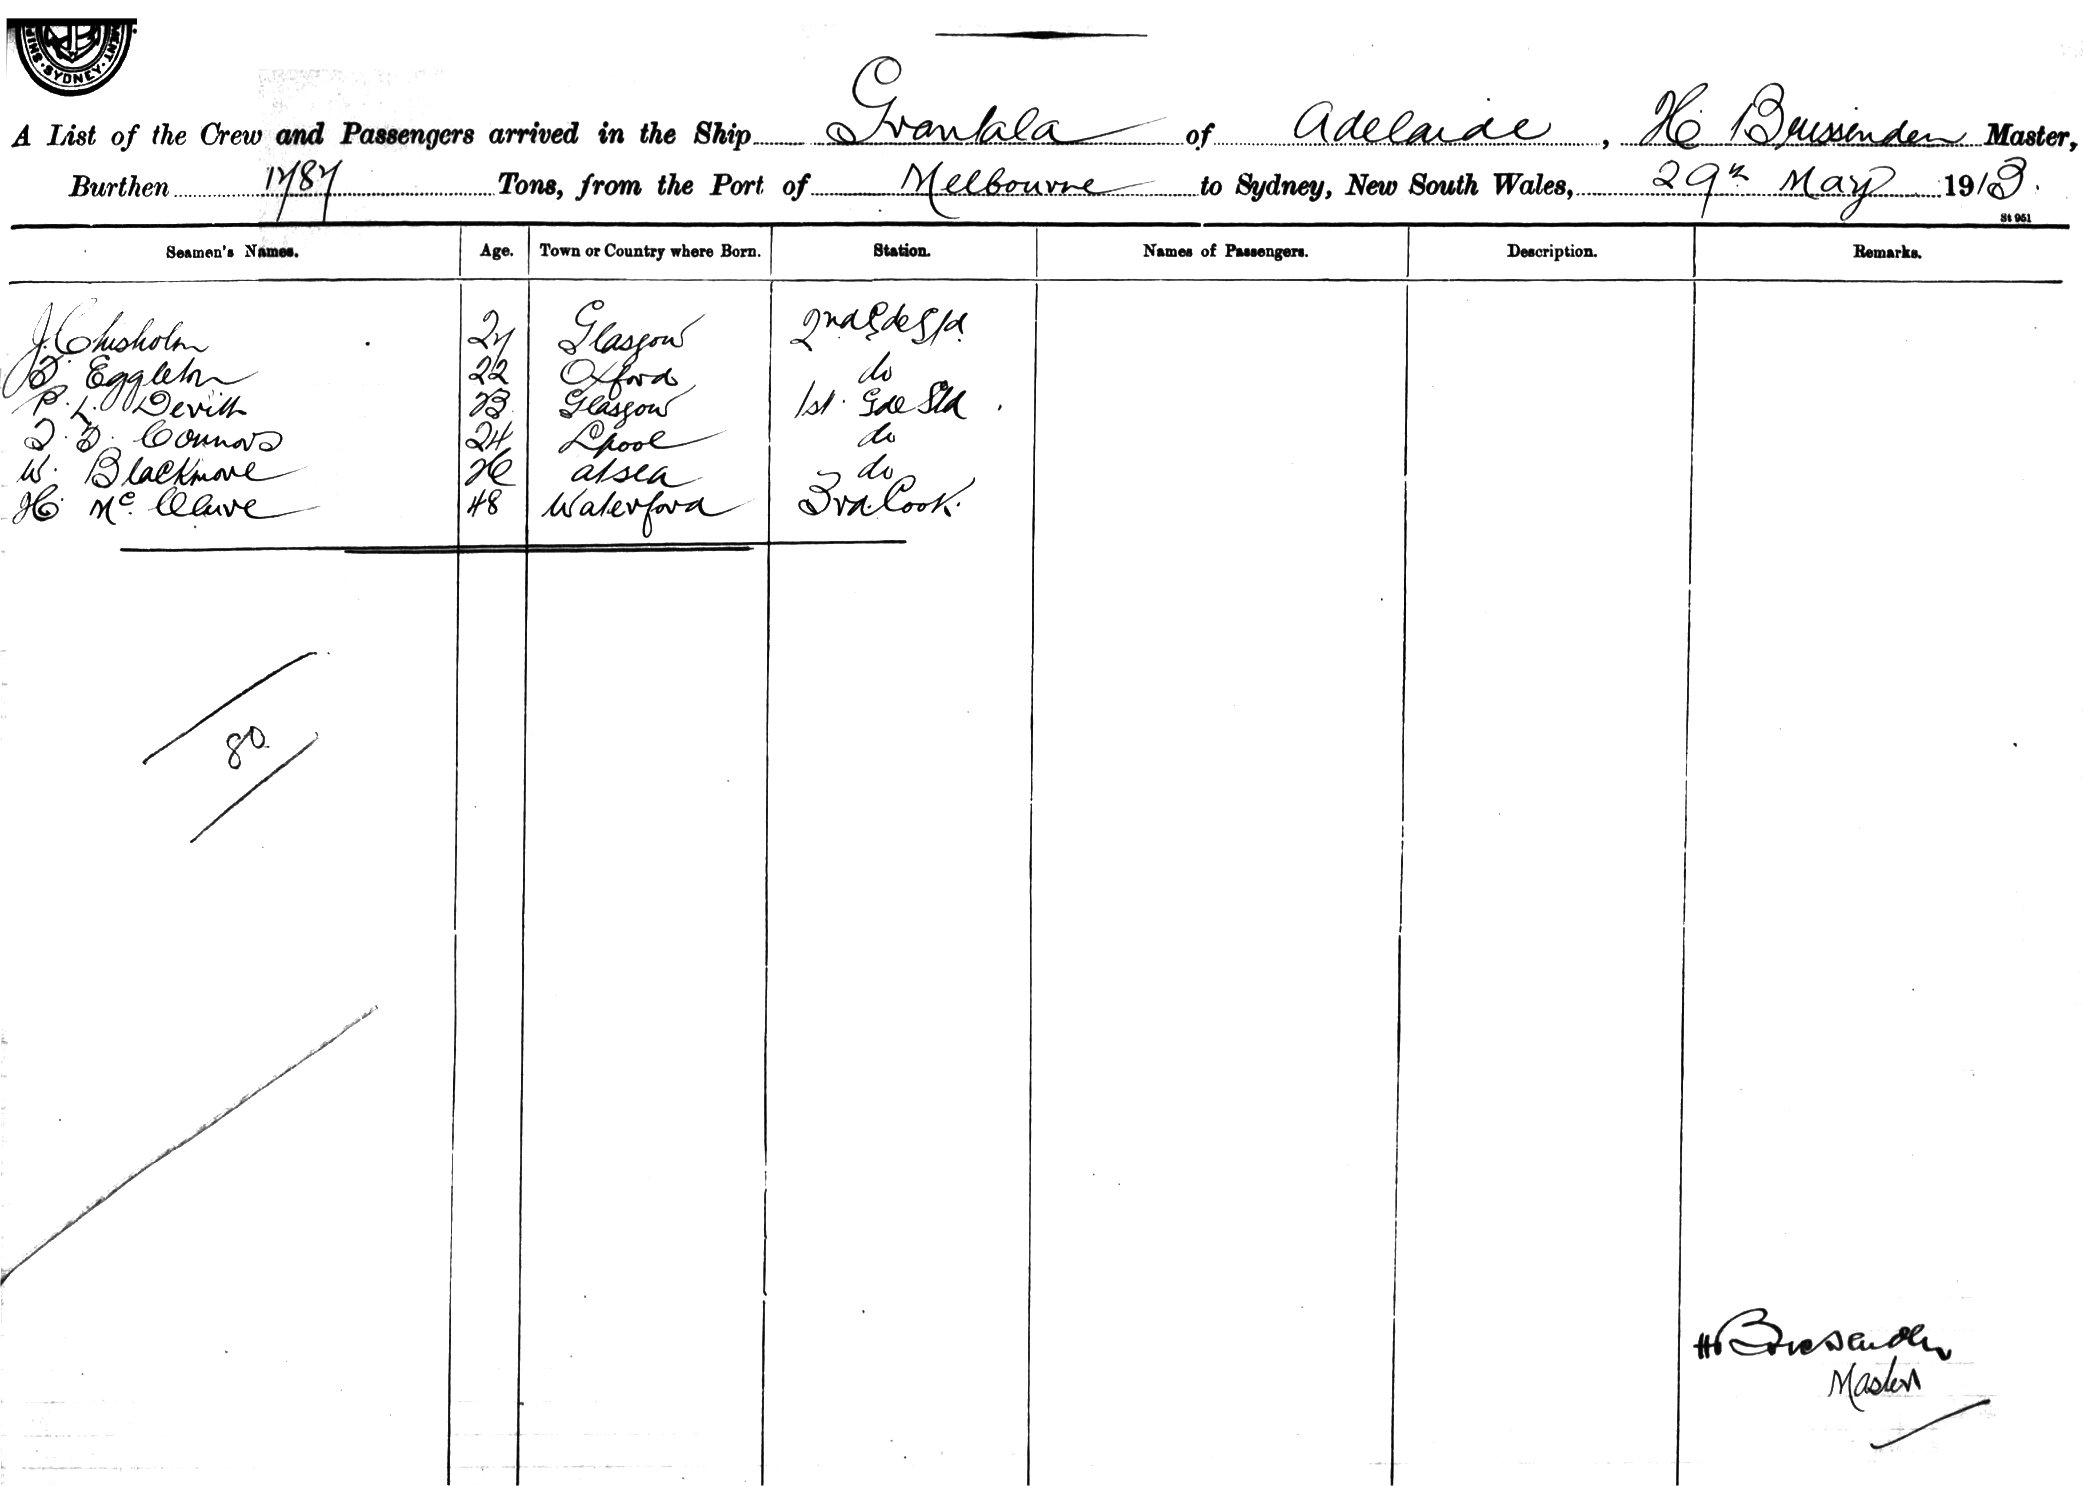 SYDNEY
A List of the Crew and Passengers arrived in the Ship Grantala of Adelaide, H Brissenden Master,
Burthen 1787 Tons, from the Port of Melbourne to Sydney, New South Wales, 29th May 1913.
St 951
Seamen's Names. Age. Town or Country where Born. Station. Names of Passengers. Description. Remarks.
J. Chisholm 27 Glasgow 2nd Gde Std.
Eggleton 22 Oxford do
P. L. Devitt 23 Glasgow 1st. Gde Std.
Connors 24 Lpool do
W. Blackmore at sea do
H. Mc. Clure 48 Waterford 3rd. Cook.
80
H Brissenden
Master